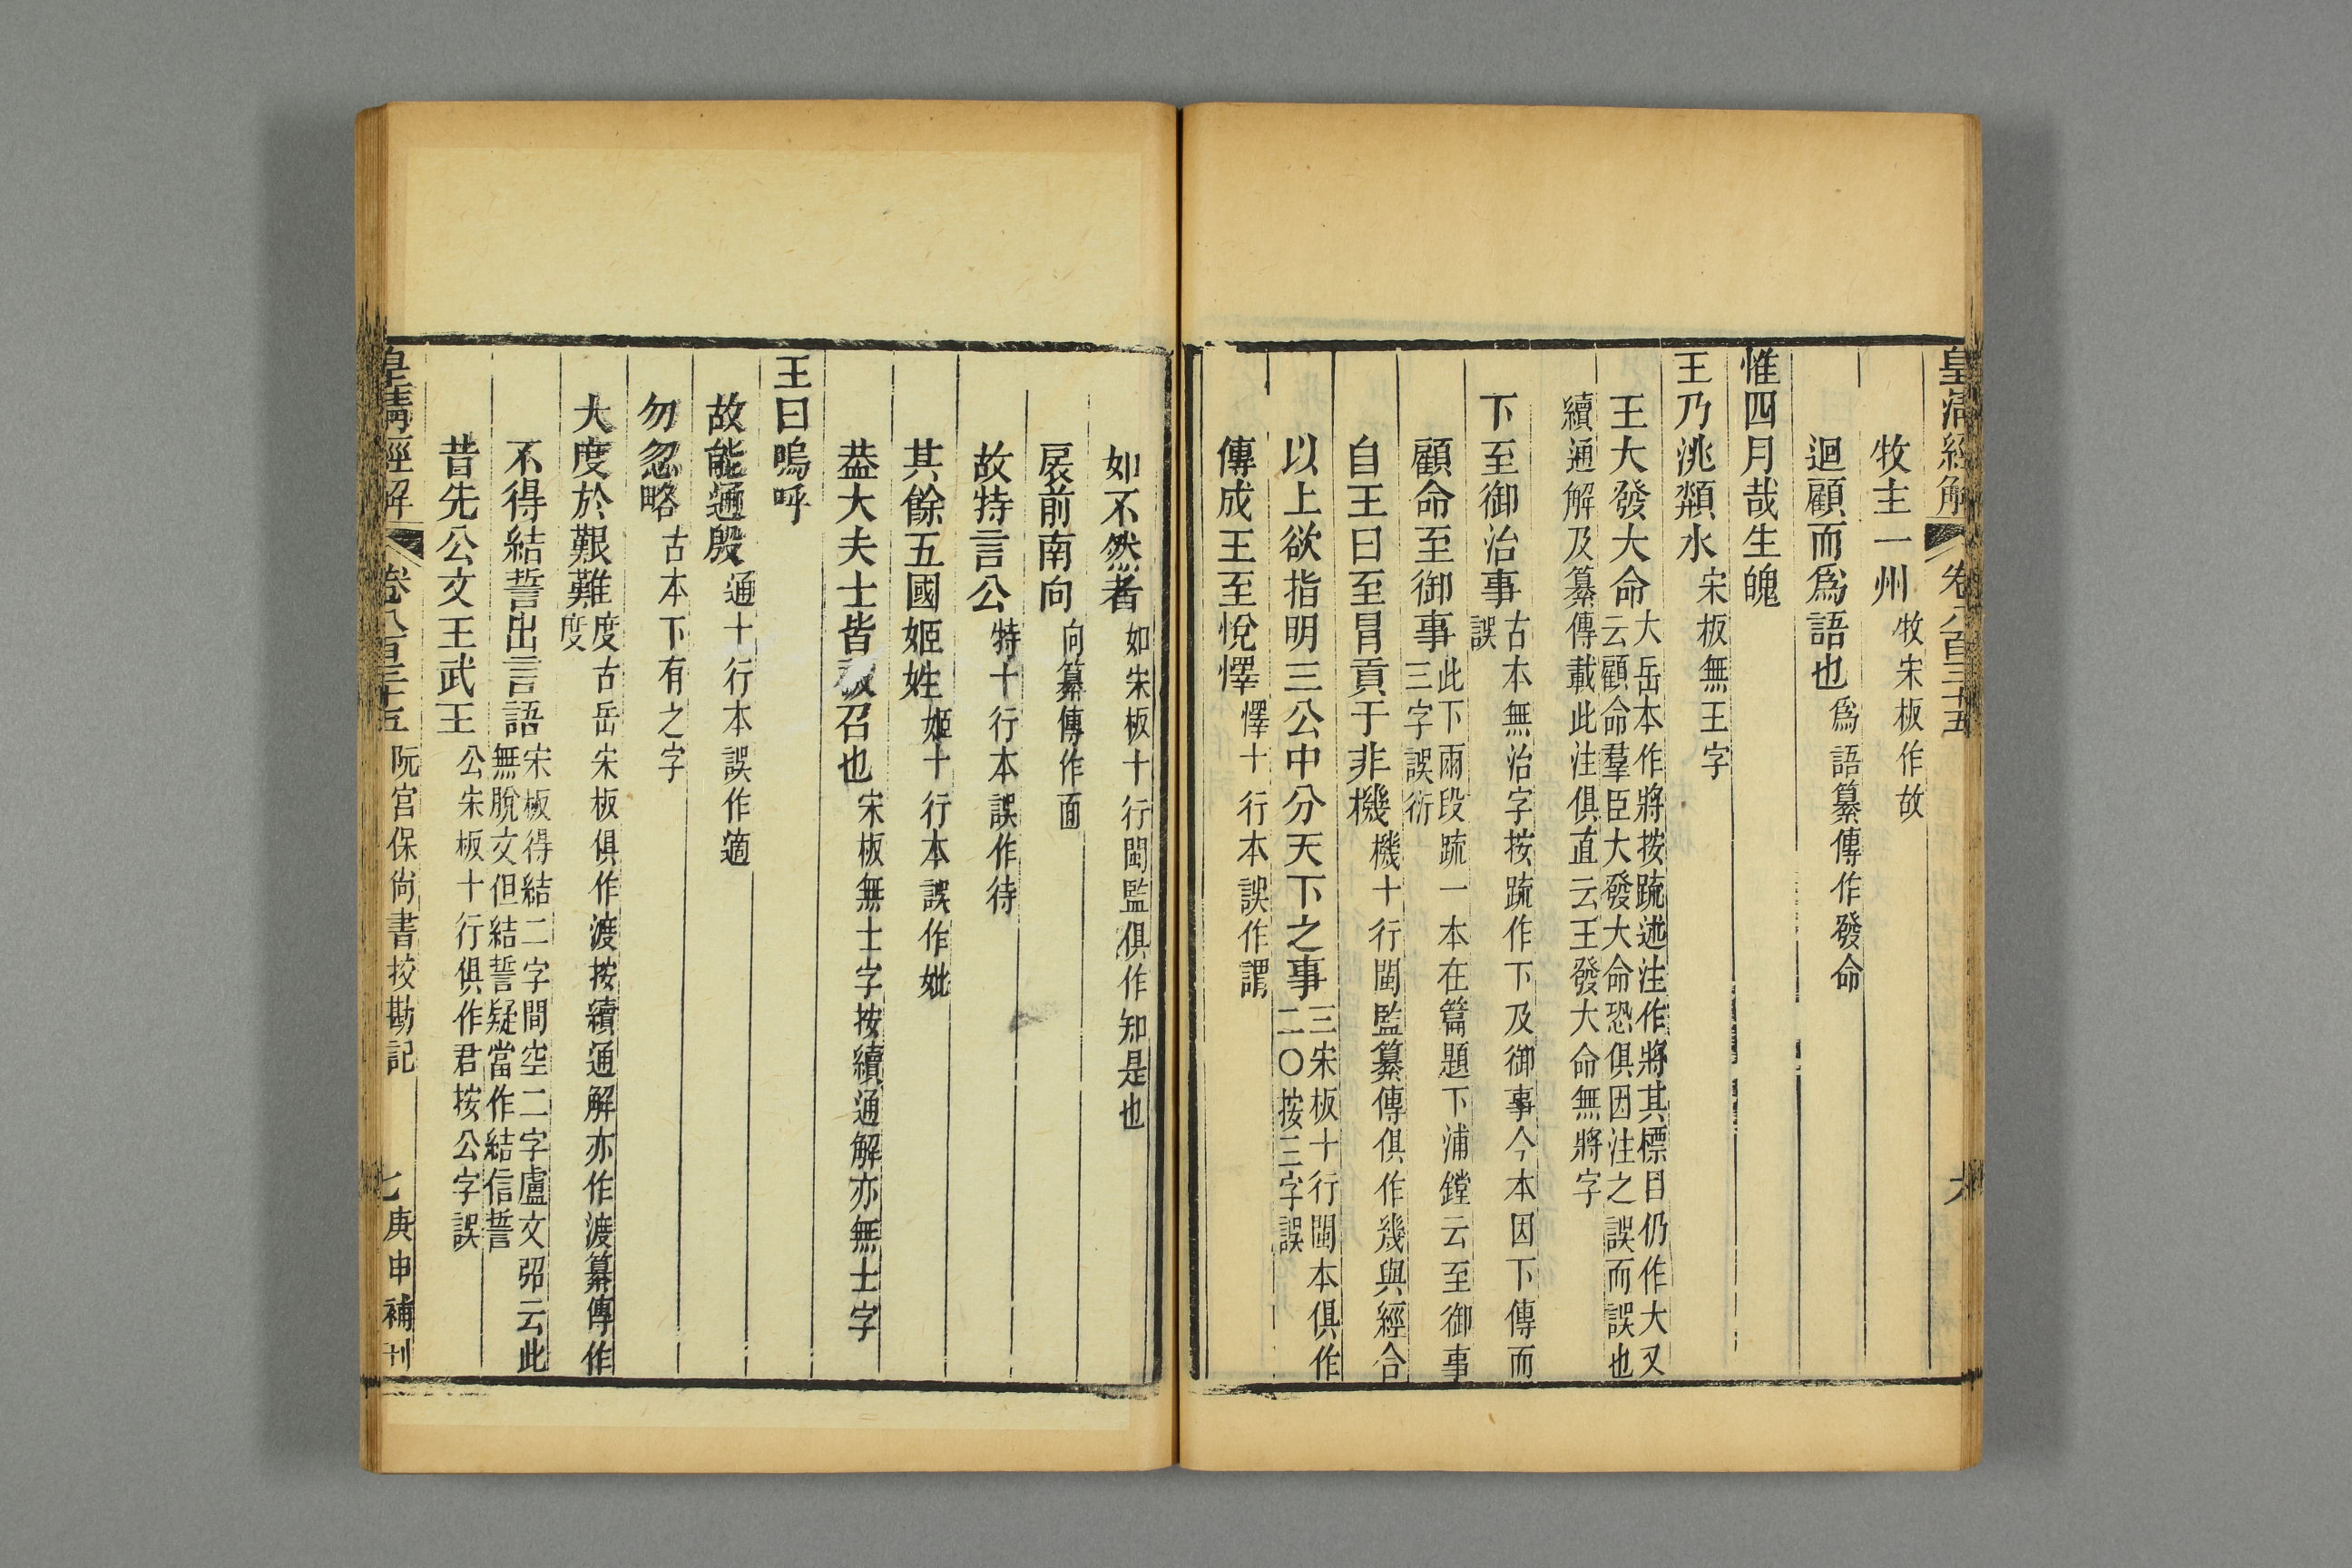 皇清經解 卷八百三十五
牧主一州 牧宋板作故
迴顧而爲語也 爲語纂傳作發命
惟四月哉生魄
王乃洮頮水 宋板無王字
王大發大命 大岳本作將按疏述注作將其標目仍作大又
云顧命羣臣大發大命恐俱因注之誤而誤也
續通解及纂傳載此注俱直云王發大命無將字
下至御治事 古本無治字按疏作下及御事今本因下傳而
誤
顧命至御事 此下兩段疏一本在篇題下浦鏜云至御事
三字誤衍
自王曰至冒貢于非機 機十行閩監纂傳俱作幾與經合
以上欲指明三公中分天下之事 三宋板十行閩本俱作
二〇按三字誤
傳成王至悅懌 懌十行本誤作謂
如不然者 如宋板十行閩監俱作知是也
扆前南向 向纂傳作面
故特言公 特十行本誤作待
其餘五國姬姓 姬十行本誤作妣
葢大夫士皆被召也 宋板無士字按續通解亦無士字
王曰嗚呼
故能通殷 通十行本誤作適
勿忽略 古本下有之字
大度於艱難 度古岳宋板俱作渡按續通解亦作渡纂傳作
度
不得結誓出言語 宋板得結二字間空二字盧文弨云此
無脫文但結誓疑當作結信誓
昔先公文王武王 公宋板十行俱作君按公字誤
皇清經解 卷八百三十五 阮宮保尚書挍勘記 七 庚申補刊